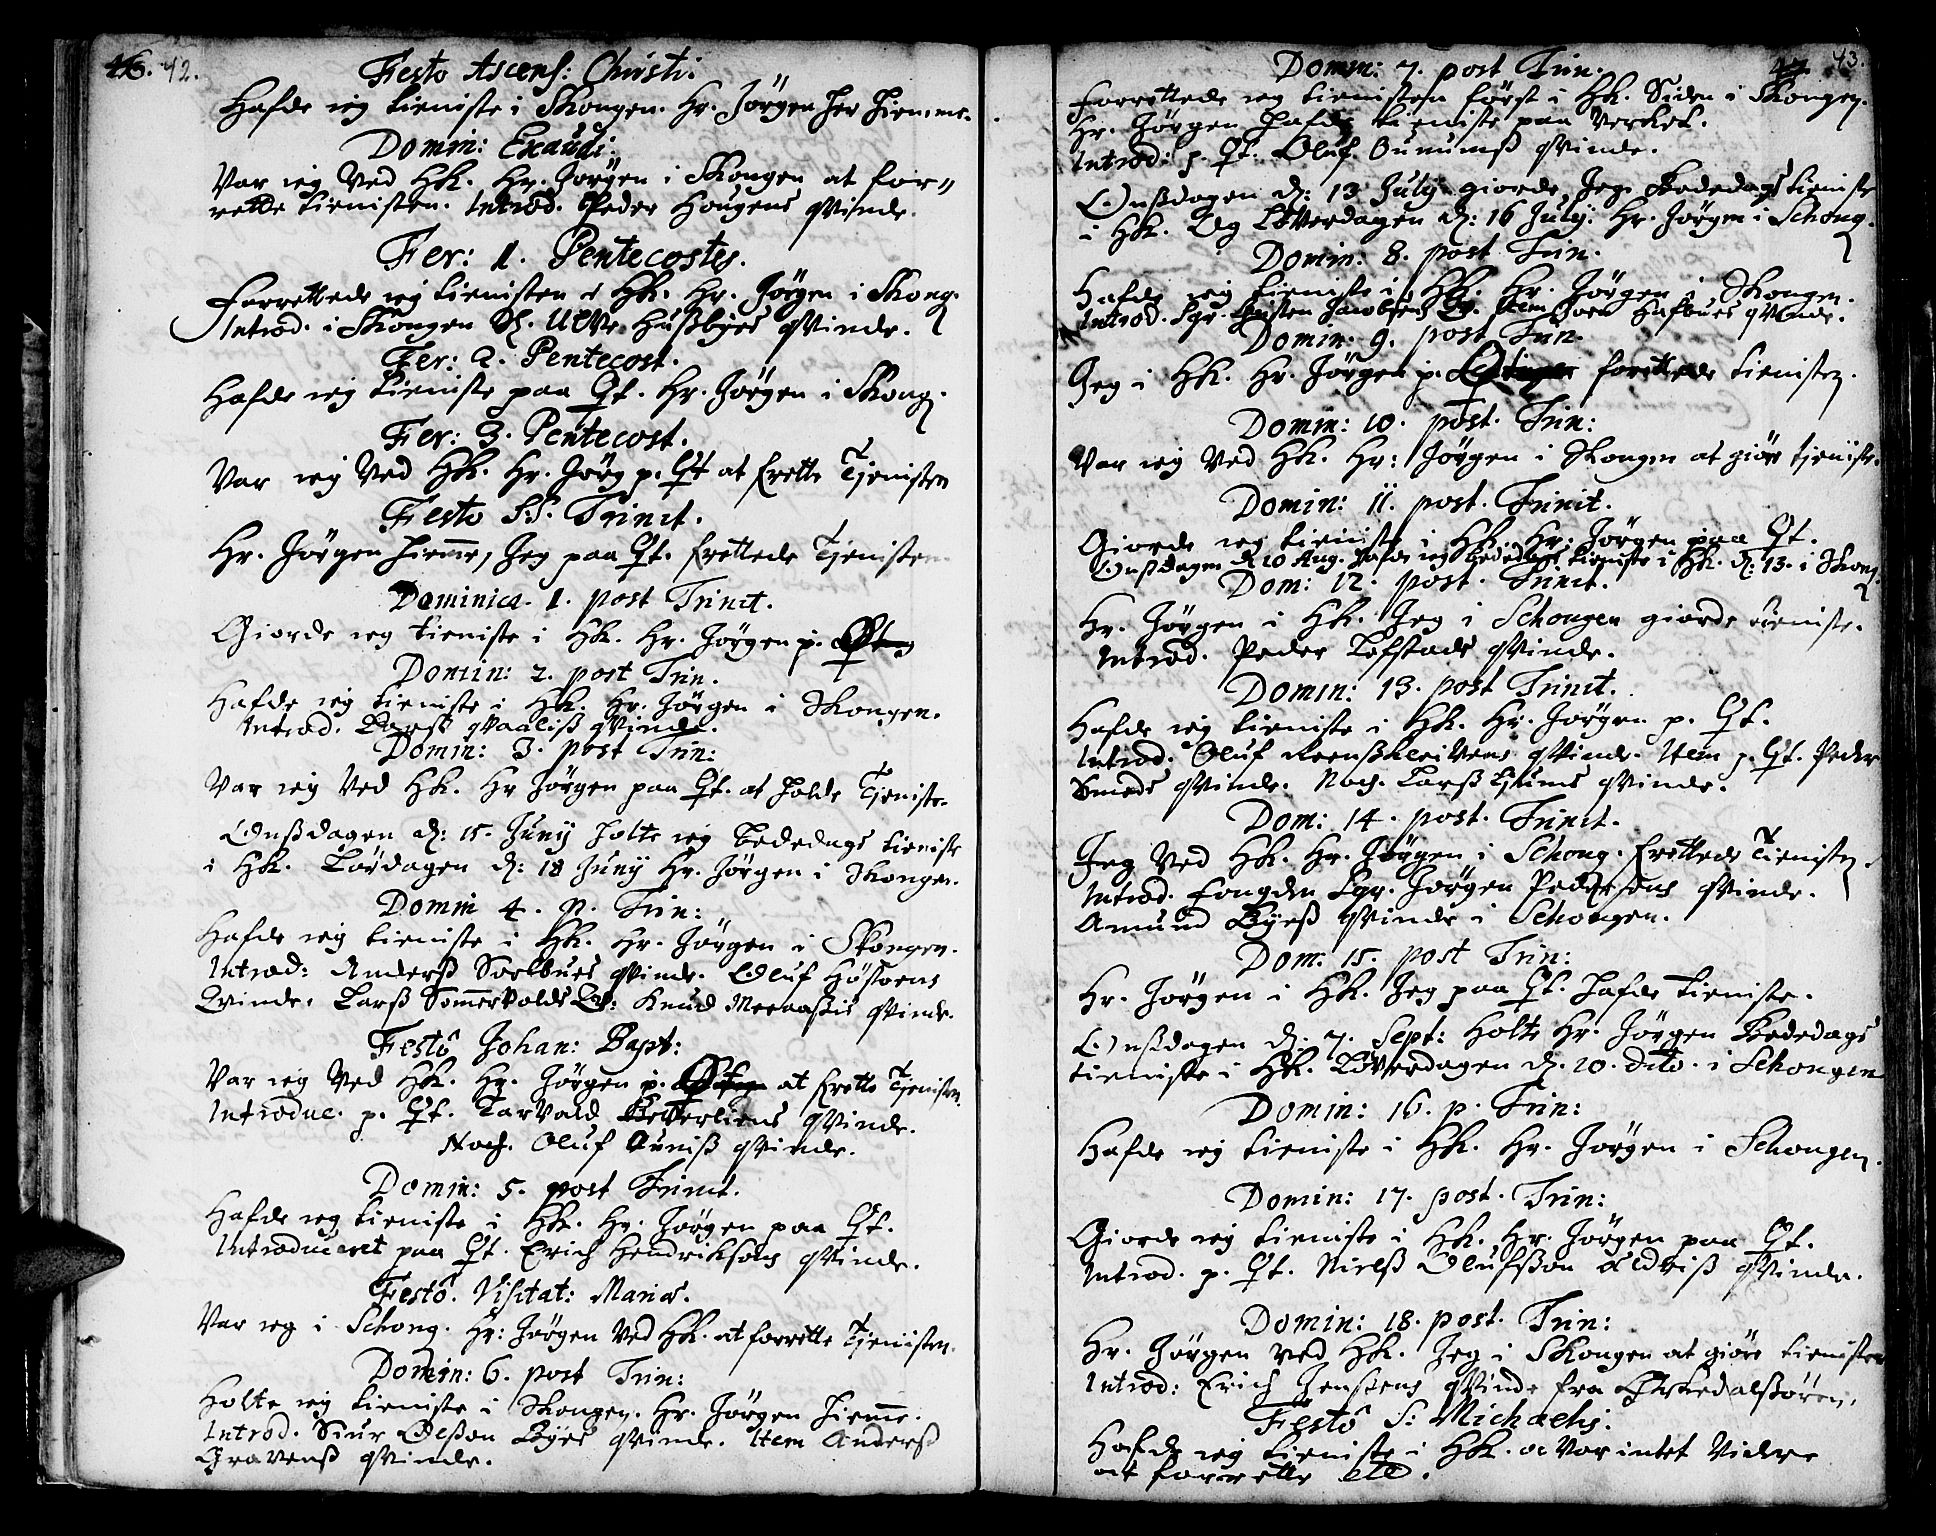 42.
Festo Ascens: Christi.
Hafde ieg tieniste i Skongen. Hr. Jörgen her hiemme.
Domin: Exaudi.
Var ieg Ved Hk. Hr. Jörgen i Skongen at for-
rette tienisten. Introd. Peder Hougens qvinde.
Fer: 1. Pentecostes.
Forrettede ieg tienisten i Hk. Hr. Jörgen i Skong.
Introd. i Skongen Hußbyes qvinde.
Fer: 2. Pentecost.
Hafde ieg tieniste paa Qf. Hr. Jörgen i Skong.
Fer: 3. Pentecost.
Var ieg Ved Hk. Hr. Jörg p. Qf at forrette Tjenisten
Festo S.S. Trinit.
Hr. Jörgen hiemme, Jeg paa Qf. forrettede Tjenisten
Dominica. 1. post Trinit.
Giorde ieg tieniste i Hk. Hr. Jörgen p.
Domin: 2. post Trin.
Hafde ieg tieniste i Hk. Hr. Jörgen i Skongen.
Introd. qvinde.
Domin: 3. post Trin:
Var ieg Ved Hk. Hr Jörgen paa Qf. at holde Tjeniste.
Onßdagen d: 15. Junij holte ieg Bededags tieniste
i Hk. Lördagen d: 18 Junij Hr. Jörgen i Skongen.
Domin 4. p. Trin:
Hafde ieg tieniste i Hk. Hr. Jörgen i Skongen.
Introd: Anderß Sorlbues qvinde. Oluf Höstoens
Qvinde. Larß Somervolds Qv: Knud qvinde.
Festô Johan: Bapt:
Var ieg Ved Hk. Hr. Jörgen p. at forrette Tjenisten.
Introduc. p. Qf. Tarvald qvinde.
Noch. Oluf Auniß qvinde.
Domin: 5. post Trinit.
Hafde ieg tieniste i Hk. Hr. Jörgen paa Qf.
Introduceret paa Qf. Erich Hendriksöns qvinde.
Festô. Visitat: Mariæ.
Var ieg i Schong. Hr: Jörgen Ved Hk. at forrette Tjenisten.
Domin: 6. post Trin:
Holte ieg tieniste i Skongen. Hr. Jörgen hiemme.
Introd. Siur Olßon Byes qvinde. Item Anderß
Gravenß qvinde.
43.
Domin: 7. post Trin.
Forrettede ieg tienisten först i Hk. Siden i Skongen.
Hr. Jörgen hafde tieniste paa Verket.
Introd: p. Qf. Oluf qvinde.
Onßdagen d: 13 July giorde Jeg Bededags tieniste
i Hk. Og Löverdagen d: 16 July. Hr. Jörgen i Schong.
Domin: 8. post Trin.
Hafde ieg tieniste i Hk. Hr. Jörgen i Skongen.
Introd. Sgr. Jacobsens Qv. Item Hafbues qvinde.
Domin. 9. post Trin.
Jeg i Hk. Hr. Jörgen p. forrettede tienisten.
Domin: 10. post. Trin:
Var ieg Ved Hk. Hr: Jörgen i Skongen at giöre tjeniste.
Domin: 11. post. Trinit.
Giorde ieg tieniste i Hk. Hr: Jörgen paa Qf.
Onßdagen d 10 Aug. hafde ieg Bededags tieniste i Hk. d: 13. i Skong.
Dom: 12. post. Trinit.
Hr. Jörgen i Hk. Jeg i Schongen giorde tieniste.
Introd. Peder Lofstads qvinde.
Domin: 13. post Trinit.
Hafde ieg tieniste i Hk. Hr. Jörgen p. Qf.
Introd. Oluf Reenßkleivens qvinde. Item p. Qf. Peder
Smeds qvinde. Noch. Larß qvinde.
Dom: 14. post. Trinit.
Jeg Ved Hk. Hr. Jörgen i Schong. forrettede Tienisten.
Introd. Fougden Sgr. Jörgen Pedersens qvinde.
Amund Byeß qvinde i Schongen.
Dom: 15. post Trin:
Hr. Jörgen i Hk. Jeg paa Qf. hafde tieniste.
Onßdagen d: 7. Sept: holte Hr. Jörgen Bededags
tieniste i Hk. Löverdagen d: 10. dito. i Schongen
Domin: 16. p. Trin:
Hafde ieg tieniste i Hk. Hr. Jörgen i Schongen.
Domin: 17. post. Trin:
Giorde ieg tieniste i Hk. Hr. Jörgen paa Qf.
Introd. p. Qf. Nielß Olufßön qvinde.
Domin: 18. post. Trin:
Hr. Jörgen ved Hk. Jeg i Skongen at giöre tienisten
Introd: Erich Jenßens qvinde fra Orkedalßören.
Festô S: Michaelis.
Hafde ieg tieniste i Hk. Var intet videre
at forrette